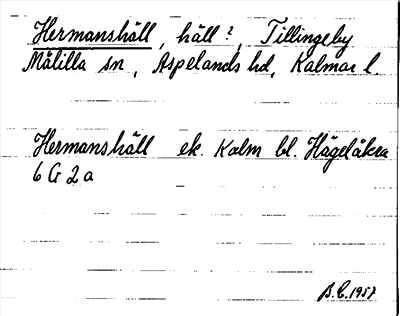 Hermanshäll, häll?, Tillingeby
Målilla sn, Aspelands hd, Kalmar l.
Hermanshäll ek. Kalm bl. Hägelåkra
6 G 2 a
B.C. 1957